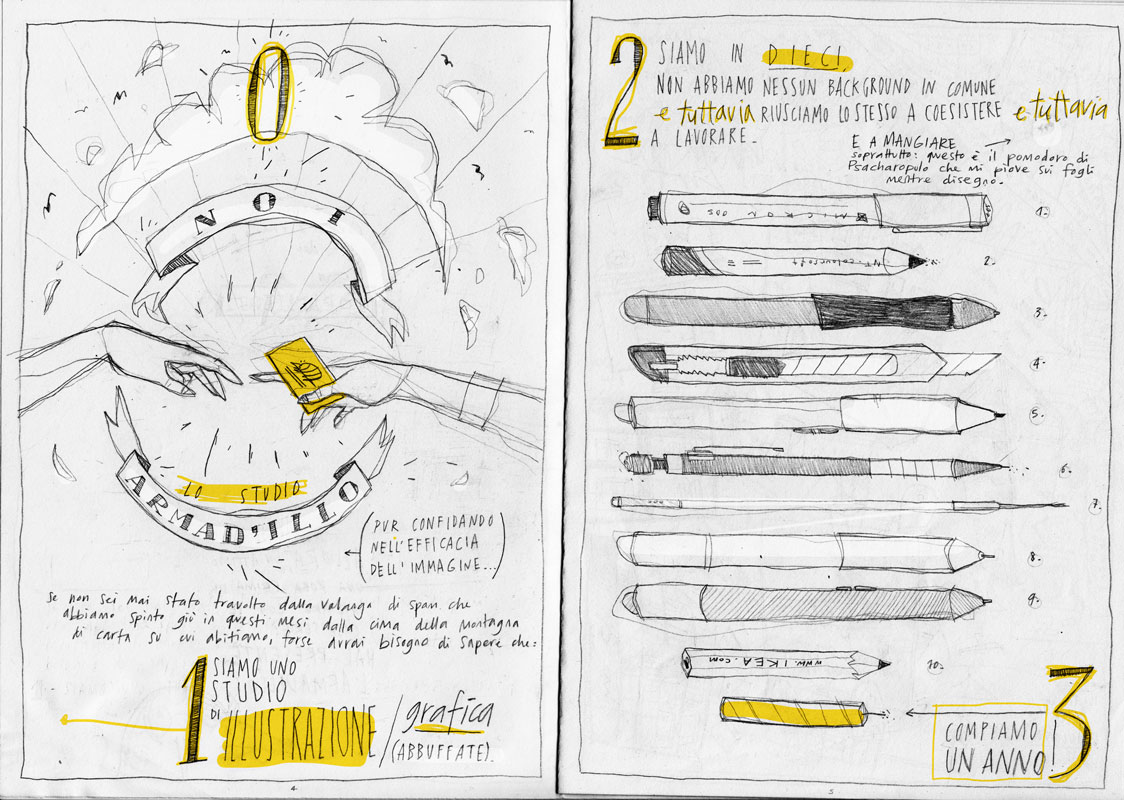 0
NOI
LO STUDIO
ARMAD'ILLO
(PUR CONFIDANDO
NELL'EFFICACIA
DELL'IMMAGINE...)
se non sei mai stato travolto dalla valanga di spam che
abbiamo spinto giù in questi mesi dalla cima della montagna
di carta su cui abitiamo, forse avrai bisogno di sapere che:
1
SIAMO UNO
STUDIO
DI ILLUSTRAZIONE / grafica
(ABBUFFATE).
4
2
SIAMO IN DIECI,
NON ABBIAMO NESSUN BACKGROUND IN COMUNE
e tuttavia RIUSCIAMO LO STESSO A COESISTERE e tuttavia
A LAVORARE.
E A MANGIARE
soprattutto: questo è il pomodoro di
Psacharopulo che mi piove sui fogli
mentre disegno.
MICRON 005
005
1.
NT. colour soft
2.
3.
4.
5.
6.
7.
8.
9.
www.IKEA.com
10.
3
COMPIAMO
UN ANNO!
5